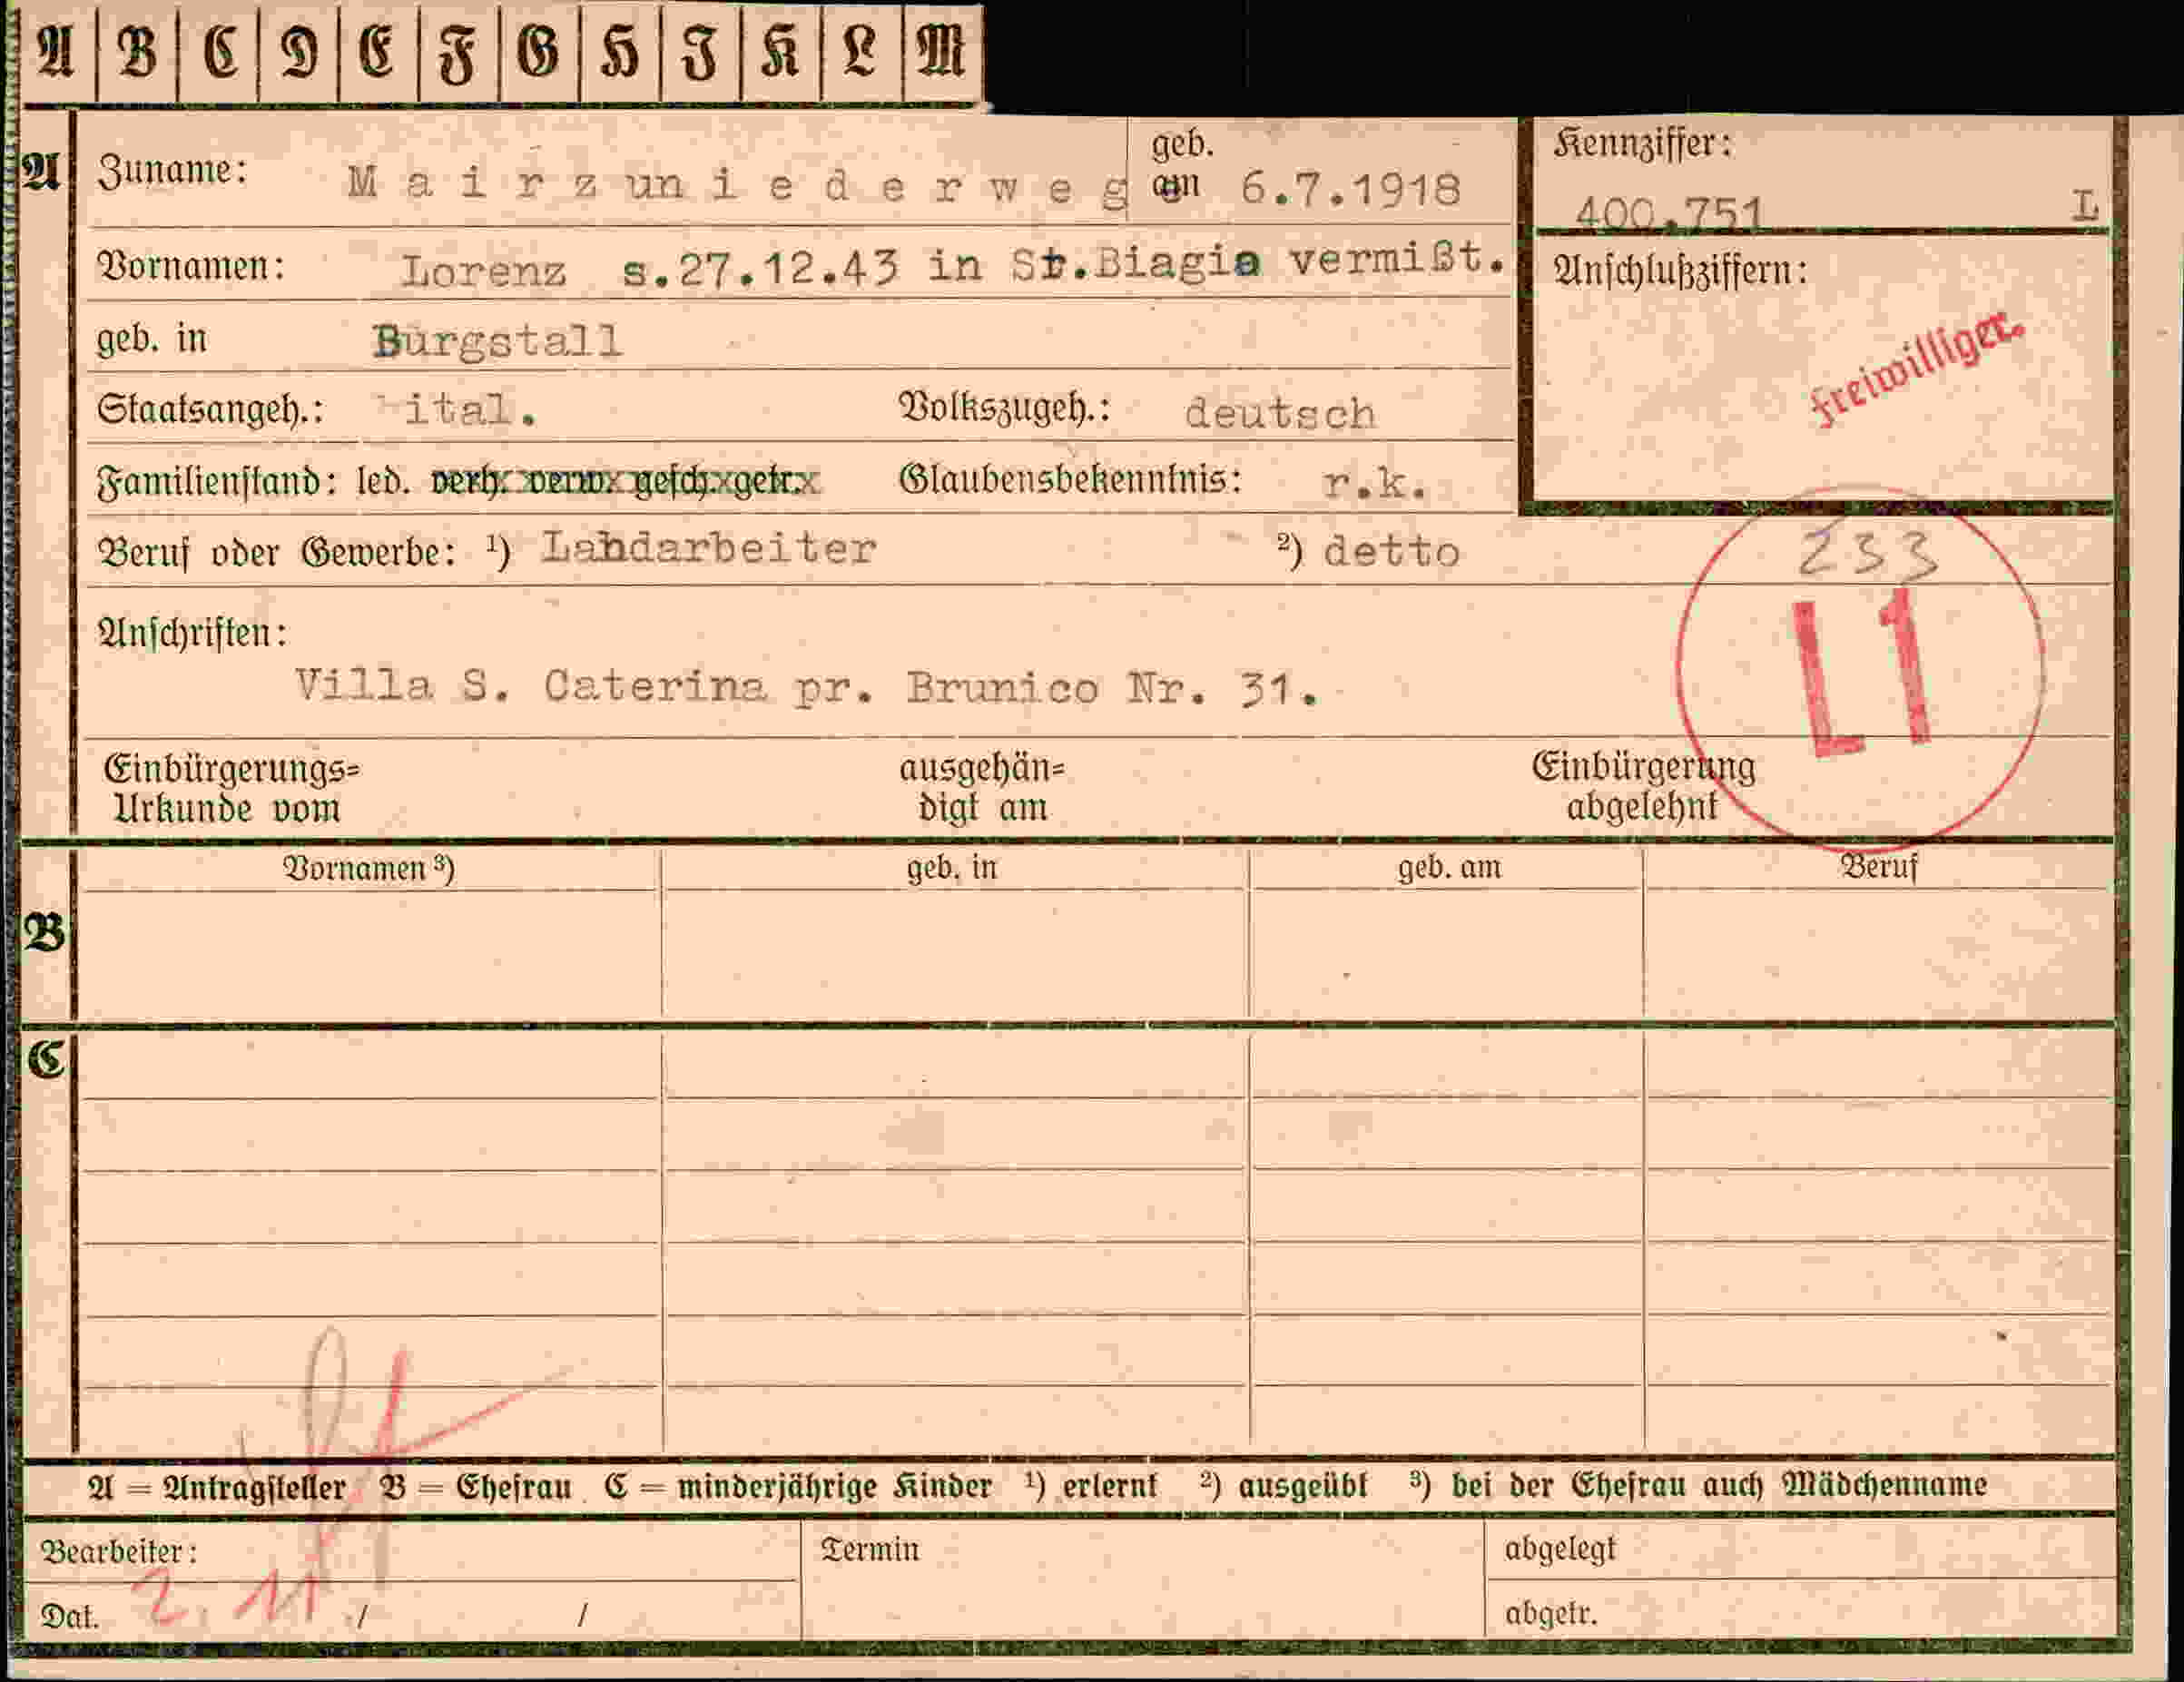 A B C D E F G H J K L M
A Zuname: Mairzuniederweg geb. am 6.7.1918 Kennziffer: 400.751 L
Vornamen: Lorenz s.27.12.43 in St.Biagio vermißt. Anschlußziffern:
freiwilliger.
geb. in Burgstall
Staatsangeh.: ital. Volkszugeh.: deutsch
Familienstand: led. verh. verw. gesch. getr. Glaubensbekenntnis: r.k.
Beruf oder Gewerbe: ¹) Landarbeiter ²) detto 233
L1
Anschriften:
Villa S. Caterina pr. Brunico Nr. 31.
Einbürgerungs= ausgehän= Einbürgerung
Urkunde vom digt am abgelehnt
Vornamen ³) geb. in geb. am Beruf
B
C
A = Antragsteller B = Ehefrau C = minderjährige Kinder ¹) erlernt ²) ausgeübt ³) bei der Ehefrau auch Mädchenname
Bearbeiter: Termin abgelegt
Dat. 2. 11 / / abgetr.